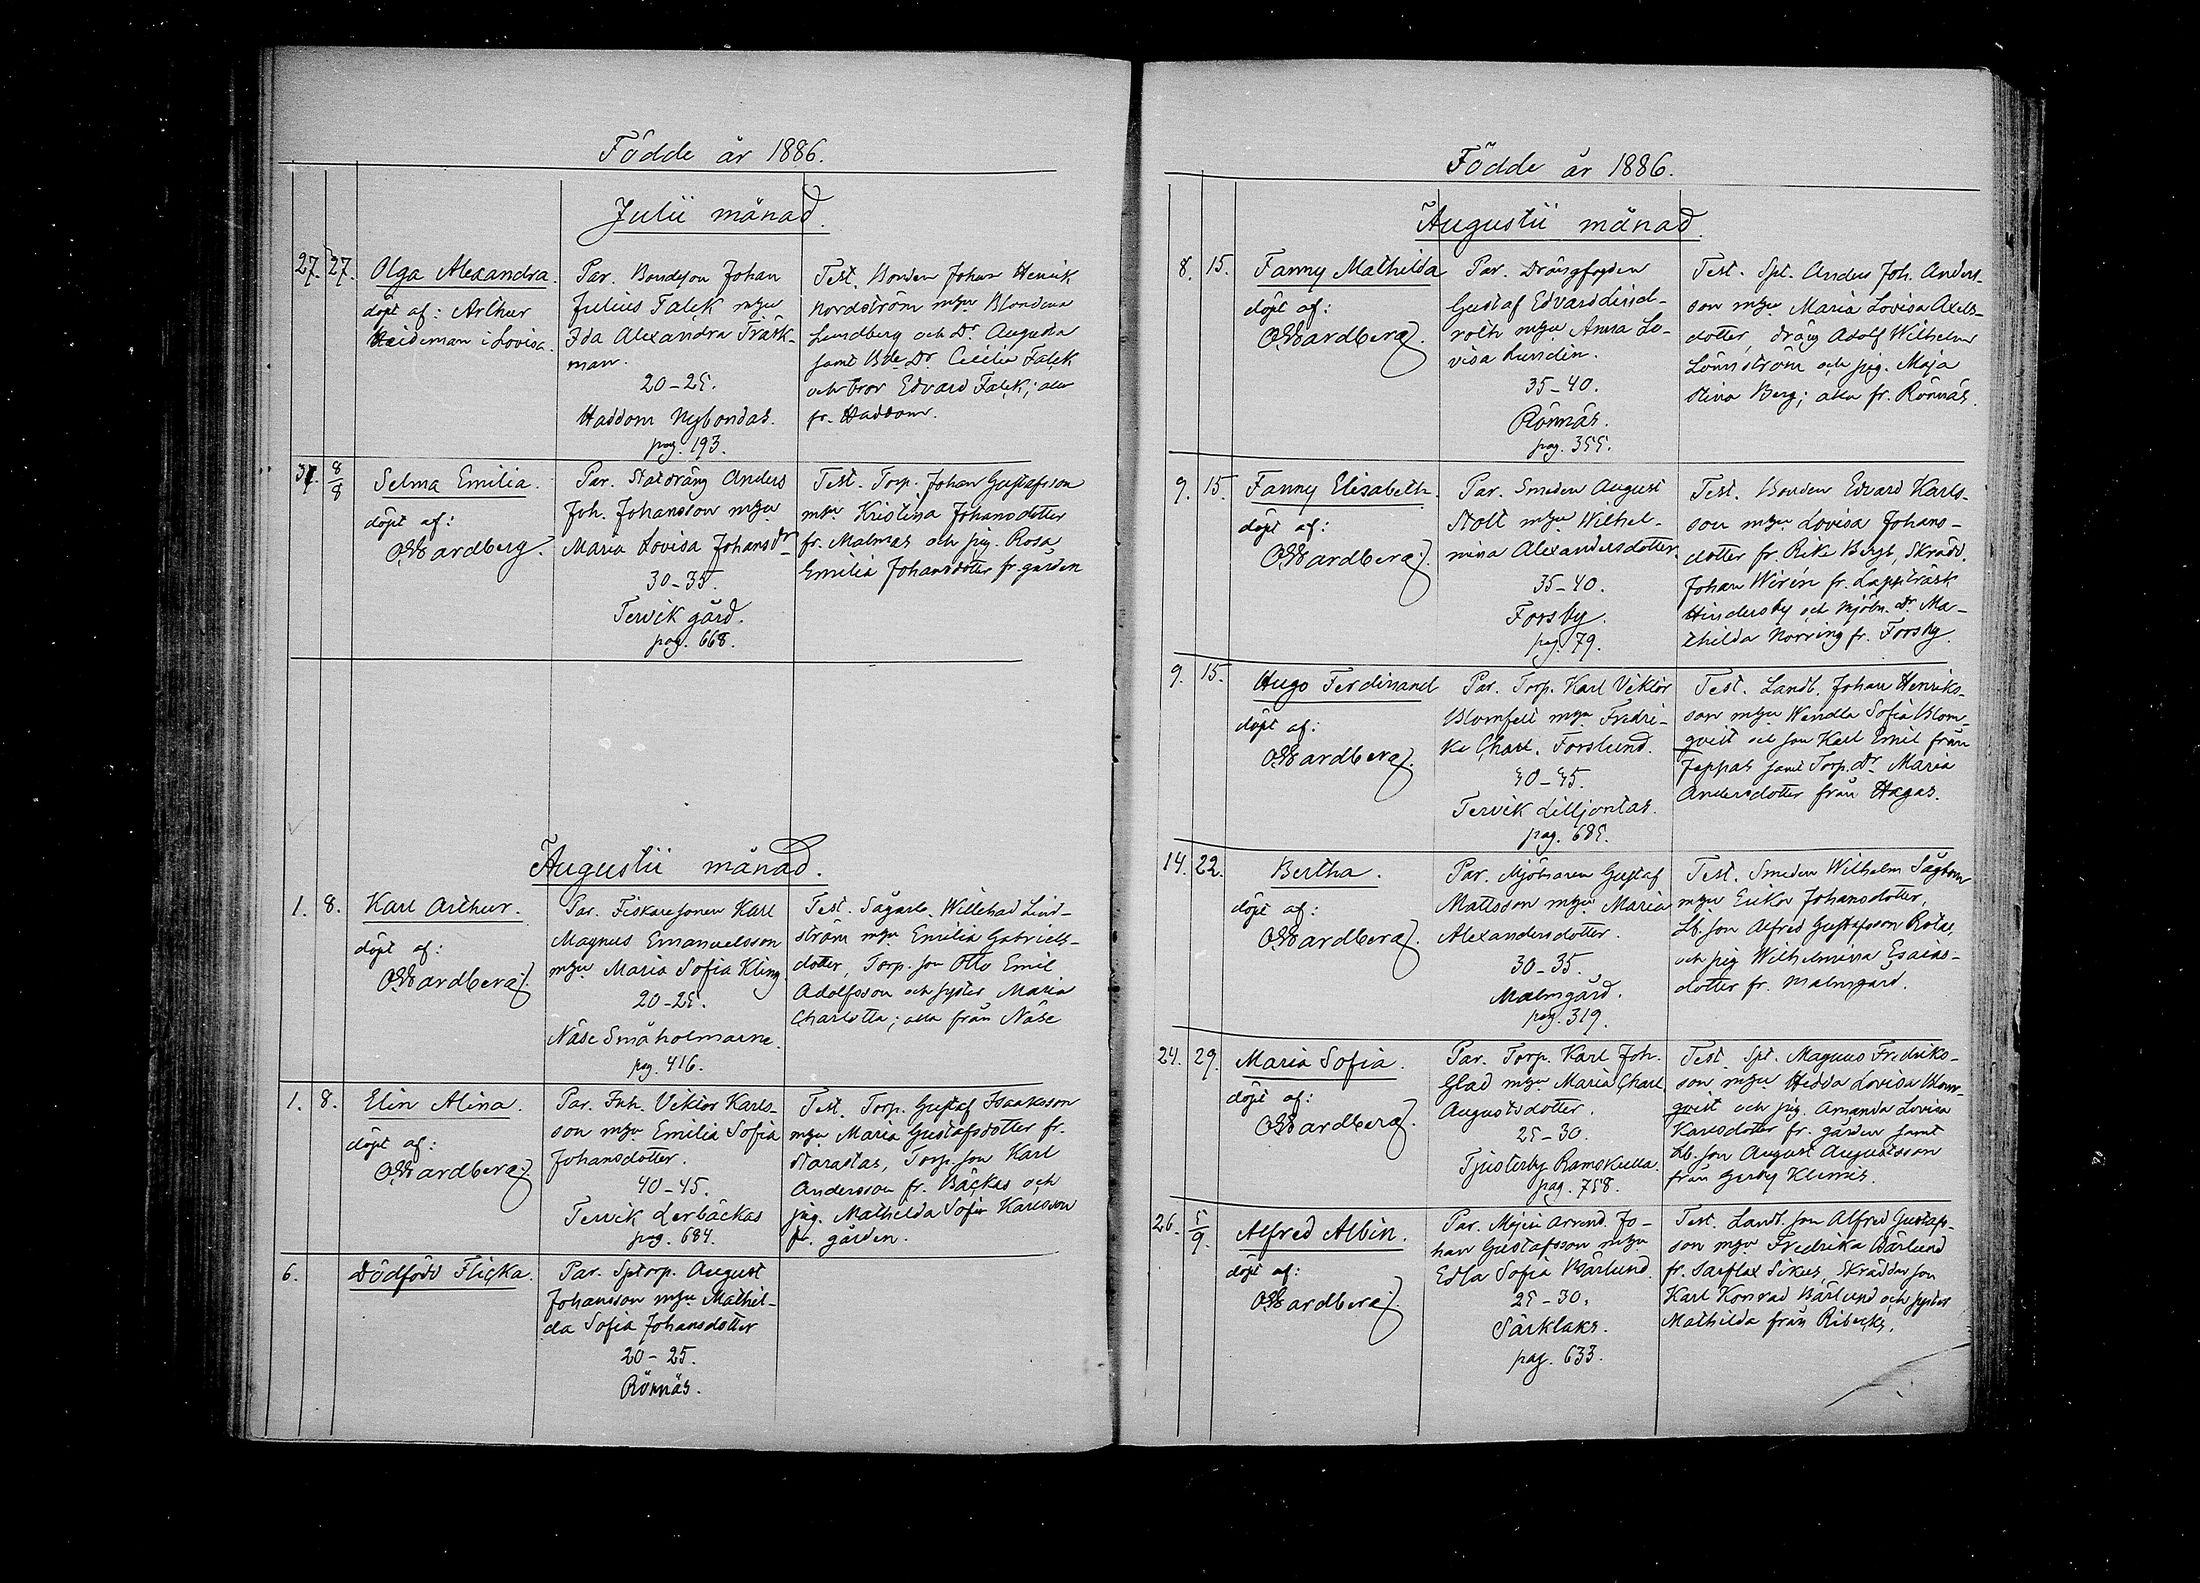 Födde år 1886.
Julii månad.
27. 27. Olga Alexandra.
döpt af: Arthur
Heideman i Lovisa.
Par. Bondeson Johan
Julius Falck m hu
Ida Alexandra Träsk-
man.
20-25.
Haddom Nybondas.
pag. 193.
Test. Bonden Johan Henrik
Nordström m hu Blondina
Lundberg och Dr. Augusta
samt Bde Dr Cecilia Falck
och bror Edvard Falck; alla
fr. Haddom.
31. 8/8 Selma Emilia.
döpt af:
OWardberg.
Par. Statdräng Anders
Joh. Johansson m hu
Maria Lovisa Johansdr
30-35.
Tervik gård.
pag. 668.
Test. Torp. Johan Gustafsson
m hu Kristina Johansdotter
fr. Malmas och pig. Rosa
Emilia Johansdotter fr. gården
Augustii månad.
1. 8. Karl Arthur.
döpt af:
OWardberg.
Par. Fiskaresonen Karl
Magnus Emanuelsson
m hu Maria Sofia Kling.
20-25.
Näse Småholmarne.
pag. 416.
Test. Sågarb. Willehad Lind-
ström m hu Emilia Gabriels-
dotter, Torp. son Otto Emil
Adolfsson och syster Maria
Charlotta; alla från Näse
1. 8. Elin Alina.
döpt af:
OWardberg.
Par. Inh. Viktor Karls-
son m hu Emilia Sofia
Johansdotter.
40-45.
Tervik Lerbäckas
pag. 684.
Test. Torp. Gustaf Isaaksson
m hu Maria Gustafsdotter fr.
Starastas, Torp. son Karl
Andersson fr. Bäckas och
pig. Mathilda Sofia Karlsson
fr. gården.
6. Dödfödd Flicka.
Par. Sptorp. August
Johansson m hu Mathil-
da Sofia Johansdotter
20-25.
Rönnäs.
Födde år 1886.
Augustii månad.
8. 15. Fanny Mathilda
döpt af:
OWardberg.
Par. Drängfogden
Gustaf Edvard Lind-
roth m hu Anna Lo-
visa Lundin.
35-40.
Rönnäs.
pag. 355.
Test. Spt. Anders Joh. Anders-
son m hu Maria Lovisa Axels-
dotter, dräng Adolf Wilhelm
Lönnström och pig. Maja
Stina Berg; alla fr. Rönnäs.
9. 15. Fanny Elisabeth.
döpt af:
OWardberg.
Par. Smeden August
Stolt m hu Wilhel-
mina Alexandersdotter.
35-40.
Forsby.
pag. 79.
Test. Bonden Edvard Karls-
son m hu Lovisa Johans-
dotter fr. Rike Bergt, Skrädd.
Johan Wirén fr. Lappträsk
Hindersby och Mjöln. dr. Ma-
thilda Norring fr. Forsby.
9. 15. Hugo Ferdinand
döpt af:
OWardberg.
Par. Torp. Karl Viktor
Blomfelt m hu Fredri-
ka Charl. Forslund.
40-45.
Tervik Lilljontas.
pag. 685.
Test. Landb. Johan Henriks-
son m hu Wendla Sofia Blom-
qvist och son Karl Emil från
Jeppas samt Torp. dr. Maria
Andersdotter från Hagas.
14. 22. Bertha.
döpt af:
OWardberg.
Par. Mjölnaren Gustaf
Mattsson m hu Maria
Alexandersdotter.
30-35.
Malmgård.
pag. 319.
Test. Smeden Wilhelm Sågbom
m hu Erika Johansdotter,
Lb. son Alfred Gustafsson Rotas,
och pig Wilhelmina Esaias-
dotter fr. Malmgård.
24. 29. Maria Sofia.
döpt af:
OWardberg.
Par. Torp. Karl Joh.
Glad m hu Maria Charl
Augustsdotter.
25-30.
Tjusterby Ramskulla.
pag. 758.
Test. Spt. Magnus Fredriks-
son m hu Hedda Lovisa Blom-
qvist och pig. Amanda Lovisa
Karlsdotter fr. gården samt
Lb. son August Augustsson
från Gerby Klemis.
26. 5/9. Alfred Albin.
döpt af:
OWardberg.
Par. Mejeri arrend. Jo-
han Gustafsson m hu
Edla Sofia Bärlund.
25-30.
Särklaks.
pag. 633.
Test. Landb. son Alfred Gustafs-
son m hu Fredrika Bärlund
fr. Sarflax Sikus, Skräddar son
Karl Konrad Bärlund och syster
Mathilda från Ribacka.